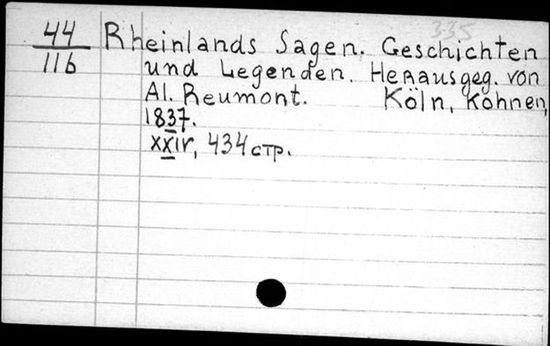 335
44
116
Rheinlands Sagen. Geschichten
und Legenden. Herausgeg. von
Al. Reumont. Köln, Kohnen,
1837.
XXIV, 434 стр.